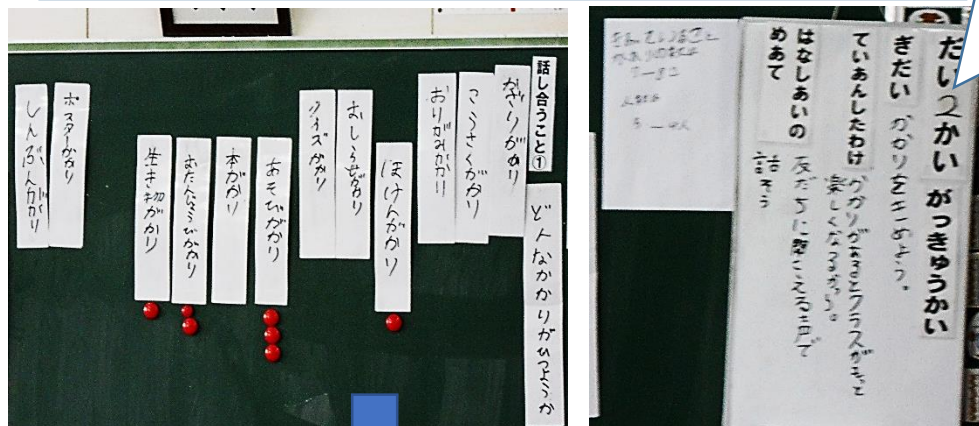 話し合うこと①
どんなかかりがひつようか
かざりがかり
こうさくがかり
おりがみがかり
ほけんがかり
おしらせがかり
クイズがかり
あそびがかり
本がかり
おたんじょうびがかり
生き物がかり
ポスターかがり
しんぶんがかり
だい2かい がっきゅうかい
ぎだい かかりをきめよう。
ていあんしたわけ かかりがあるとクラスがもっと
楽しくなるから。
はなしあいの
めあて
友だちに聞こえる声で
話そう